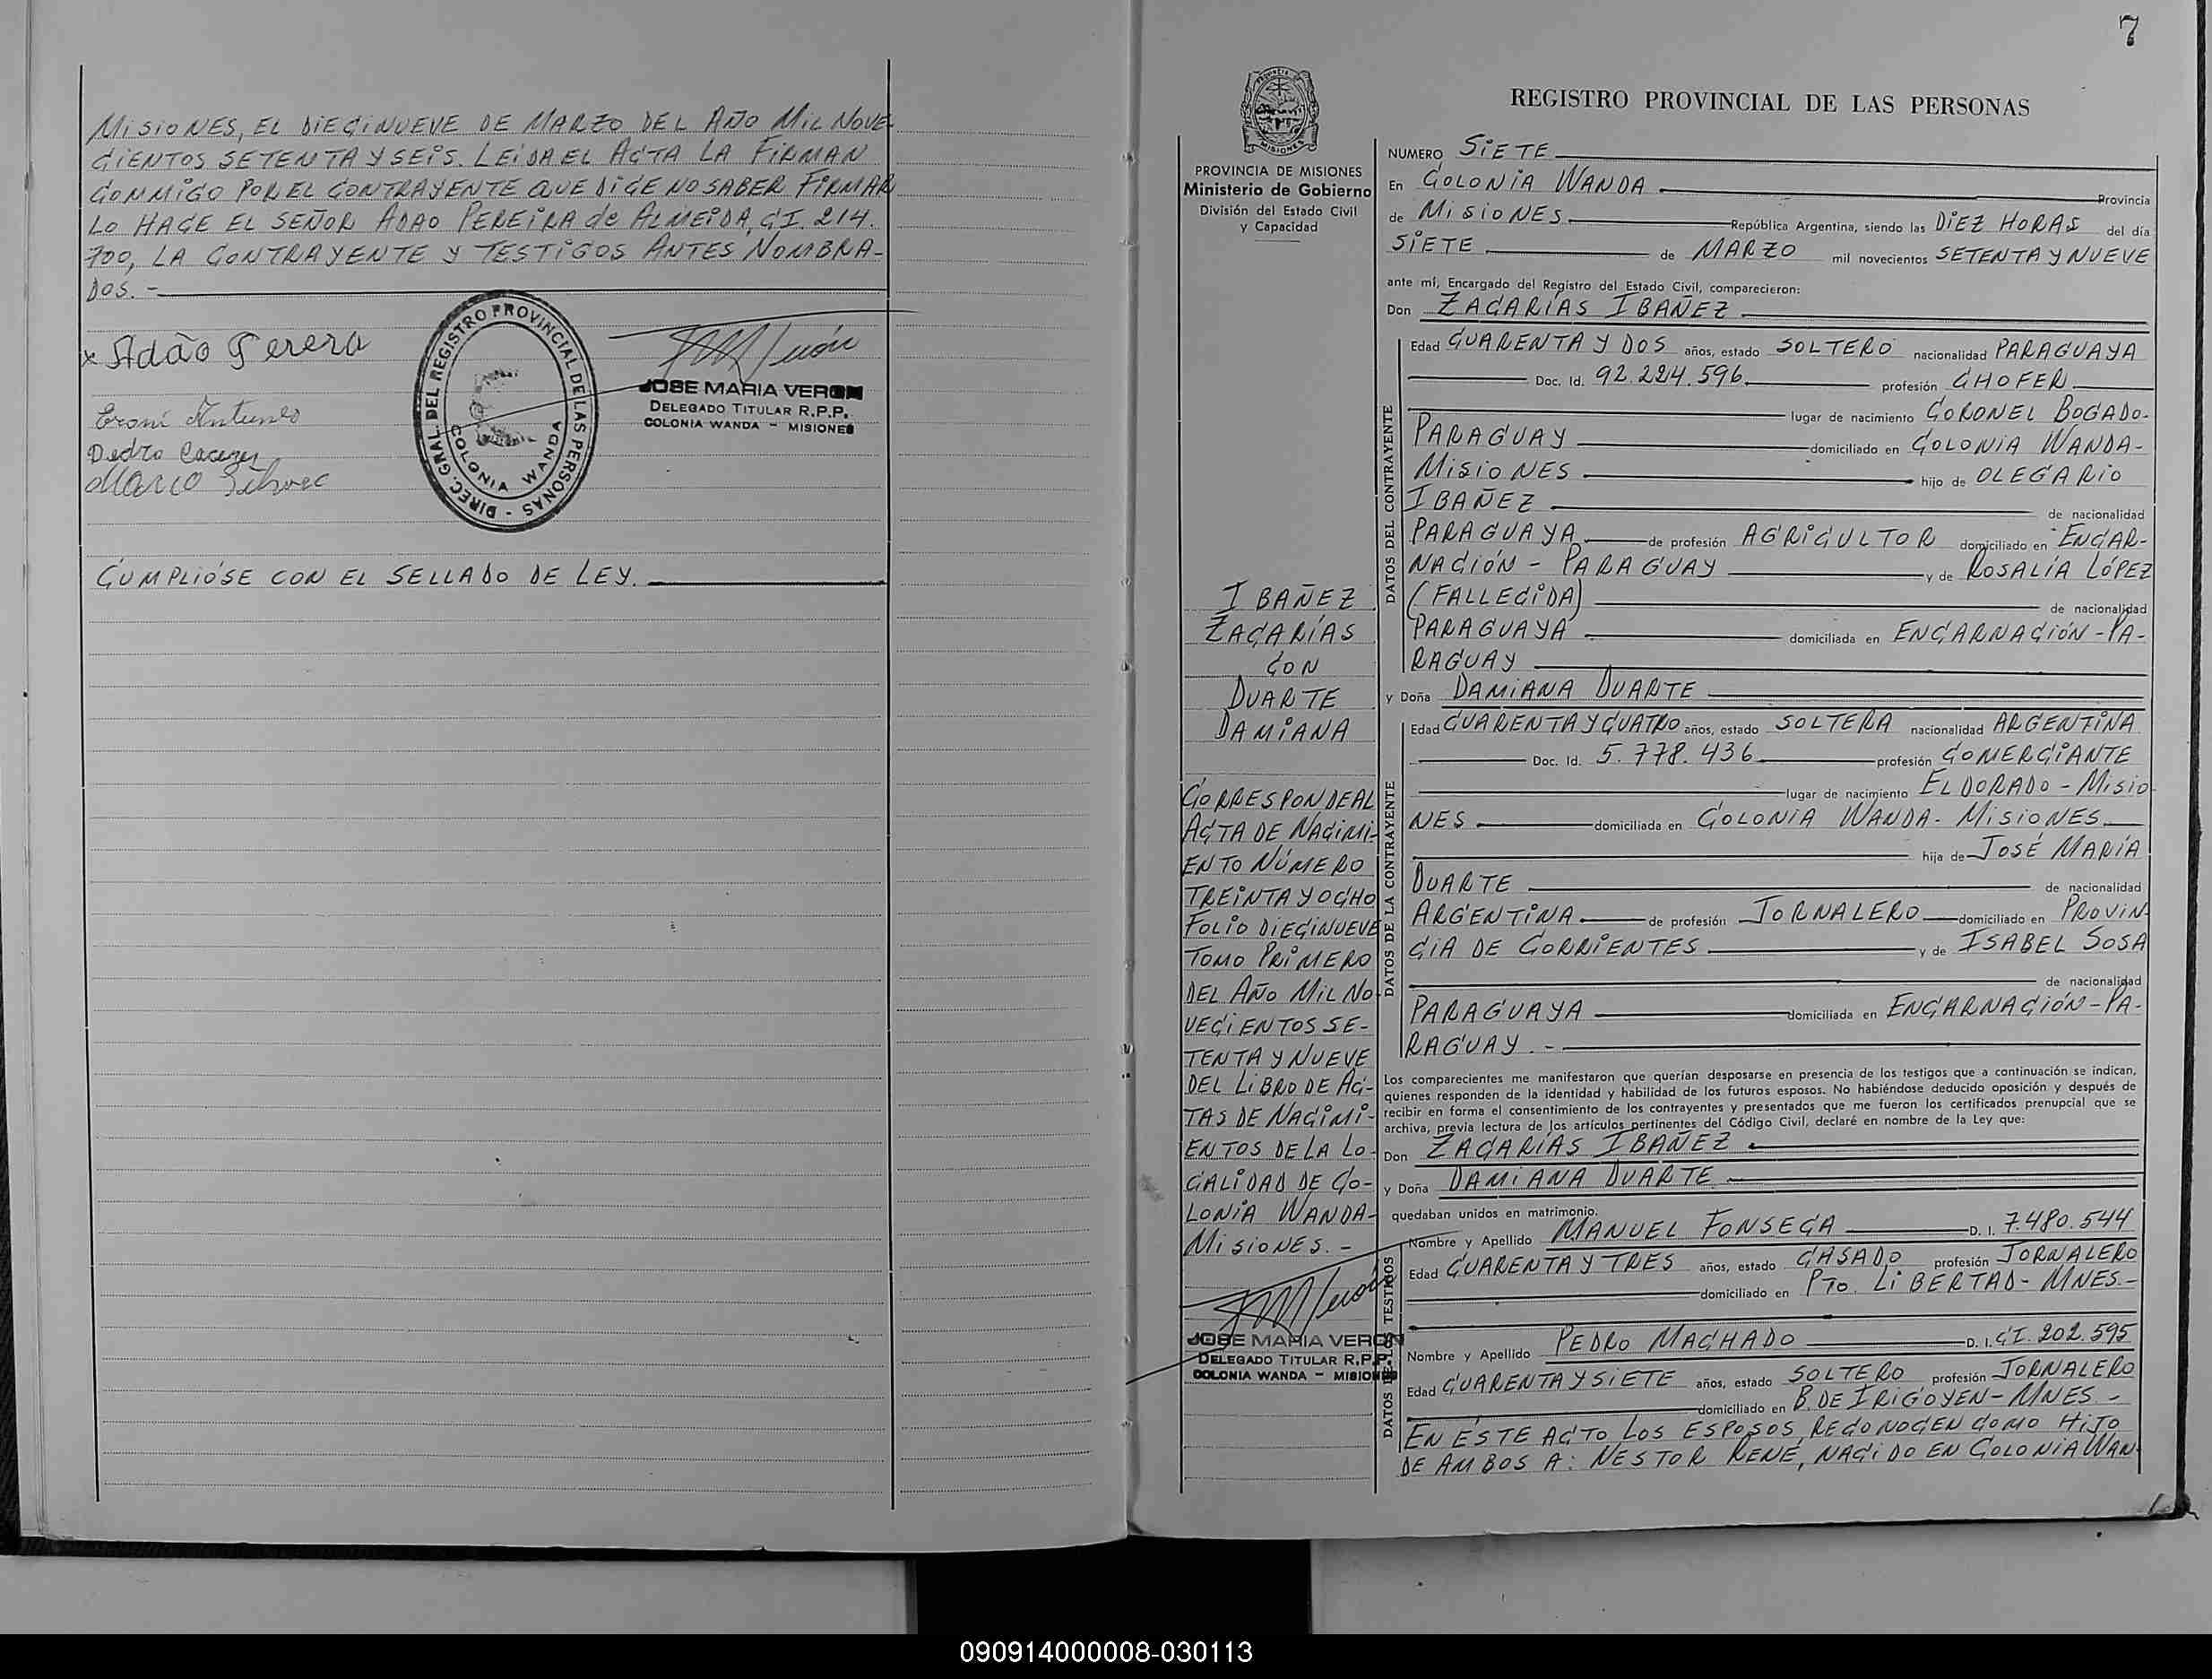 MISIONES, EL DIECINUEVE DE MARZO DEL AÑO MIL NOVE
CIENTOS SETENTA Y SEIS. LEIDA EL ACTA LA FIRMAN
CONMIGO POR EL CONTRAYENTE QUE DICE NO SABER FIRMAR
LO HACE EL SEÑOR ADAO PEREIRA de ALMEIDA, CI. 214.
700, LA CONTRAYENTE Y TESTIGOS ANTES NOMBRA-
DOS.-
x Adão Perera
Eroni Antunes
Pedro
Mario
DIREC. GRAL. DEL REGISTRO PROVINCIAL DE LAS PERSONAS -
COLONIA WANDA
JOSE MARIA VERON
DELEGADO TITULAR R.P.P.
COLONIA WANDA - MISIONES
CUMPLIÓSE CON EL SELLADO DE LEY.
7
PROVINCIA DE MISIONES
Ministerio de Gobierno
División del Estado Civil
y Capacidad
IBAÑEZ
ZACARÍAS
CON
DUARTE
DAMIANA
CORRESPONDE AL
ACTA DE NACIMI-
ENTO NÚMERO
TREINTA Y OCHO
FOLIO DIECINUEVE
TOMO PRIMERO
DEL AÑO MIL NO-
VECIENTOS SE-
TENTA Y NUEVE
DEL LIBRO DE AC-
TAS DE NACIMI-
ENTOS DE LA LO-
CALIDAD DE CO-
LONIA WANDA-
MISIONES.-
JOSE MARIA VERON
DELEGADO TITULAR R.P.P.
COLONIA WANDA - MISIONES
REGISTRO PROVINCIAL DE LAS PERSONAS
NUMERO SIETE
En COLONIA WANDA Provincia
de MISIONES República Argentina, siendo las DIEZ HORAS del día
SIETE de MARZO mil novecientos SETENTA Y NUEVE
ante mí, Encargado del Registro del Estado Civil, comparecieron:
Don ZACARÍAS IBAÑEZ
DATOS DEL CONTRAYENTE
Edad CUARENTA Y DOS años, estado SOLTERO nacionalidad PARAGUAYA
Doc. Id. 92.224.596 profesión CHOFER
lugar de nacimiento CORONEL BOGADO-
PARAGUAY domiciliado en COLONIA WANDA-
MISIONES hijo de OLEGARIO
IBAÑEZ de nacionalidad
PARAGUAYA de profesión AGRICULTOR domiciliado en ENCAR-
NACIÓN - PARAGUAY y de ROSALÍA LÓPEZ
(FALLECIDA) de nacionalidad
PARAGUAYA domiciliada en ENCARNACIÓN-PA-
RAGUAY
y Doña DAMIANA DUARTE
DATOS DE LA CONTRAYENTE
Edad CUARENTA Y CUATRO años, estado SOLTERA nacionalidad ARGENTINA
Doc. Id. 5.778.436 profesión COMERCIANTE
lugar de nacimiento ELDORADO - MISIO-
NES domiciliada en COLONIA WANDA- MISIONES
hija de JOSÉ MARÍA
DUARTE de nacionalidad
ARGENTINA de profesión JORNALERO domiciliado en PROVIN-
CIA DE CORRIENTES y de ISABEL SOSA
de nacionalidad
PARAGUAYA domiciliada en ENCARNACIÓN-PA-
RAGUAY.-
Los comparecientes me manifestaron que querían desposarse en presencia de los testigos que a continuación se indican,
quienes responden de la identidad y habilidad de los futuros esposos. No habiéndose deducido oposición y después de
recibir en forma el consentimiento de los contrayentes y presentados que me fueron los certificados prenupcial que se
archiva, previa lectura de los artículos pertinentes del Código Civil, declaré en nombre de la Ley que:
Don ZACARÍAS IBAÑEZ
y Doña DAMIANA DUARTE
quedaban unidos en matrimonio.
DATOS DE LOS TESTIGOS
Nombre y Apellido MANUEL FONSECA D. I. 7.480.544
Edad CUARENTA Y TRES años, estado CASADO profesión JORNALERO
domiciliado en PTO. LIBERTAD - MNES.-
Nombre y Apellido PEDRO MACHADO D. I. CI. 202.595
Edad CUARENTA Y SIETE años, estado SOLTERO profesión JORNALERO
domiciliado en B. DE IRIGOYEN - MNES.-
EN ÉSTE ACTO LOS ESPOSOS, RECONOCEN COMO HIJO
DE AMBOS A: NESTOR RENÉ, NACIDO EN COLONIA WAN-
090914000008-030113